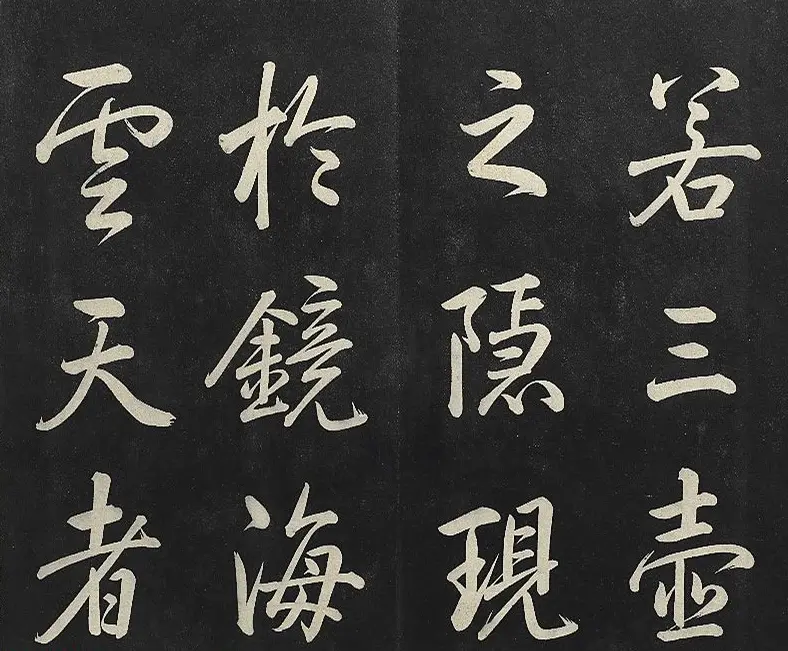 若三壺
之隱現
於鏡海
雲天者